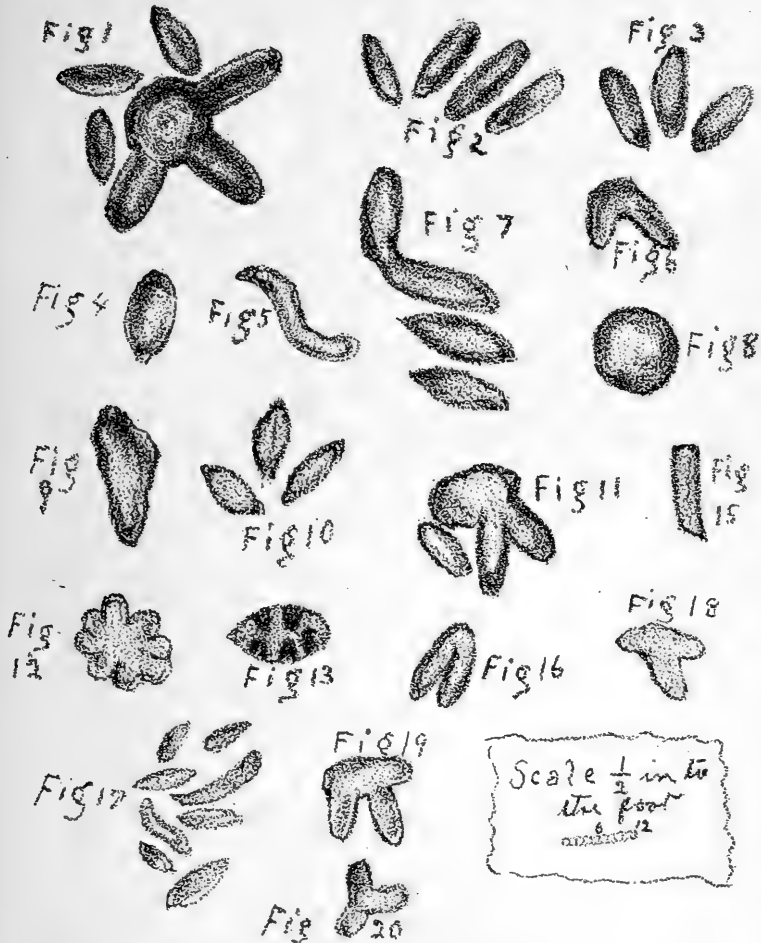 Fig 1
Fig 2
Fig 3
Fig 4
Fig 5
Fig 7
Fig 6
Fig 8
Fig
9
Fig 10
Fig 11
Fig
15
Fig
12
Fig 13
Fig 16
Fig 18
Fig 17
Fig 19
Fig 20
Scale 1/2 in to
the foot
6 12